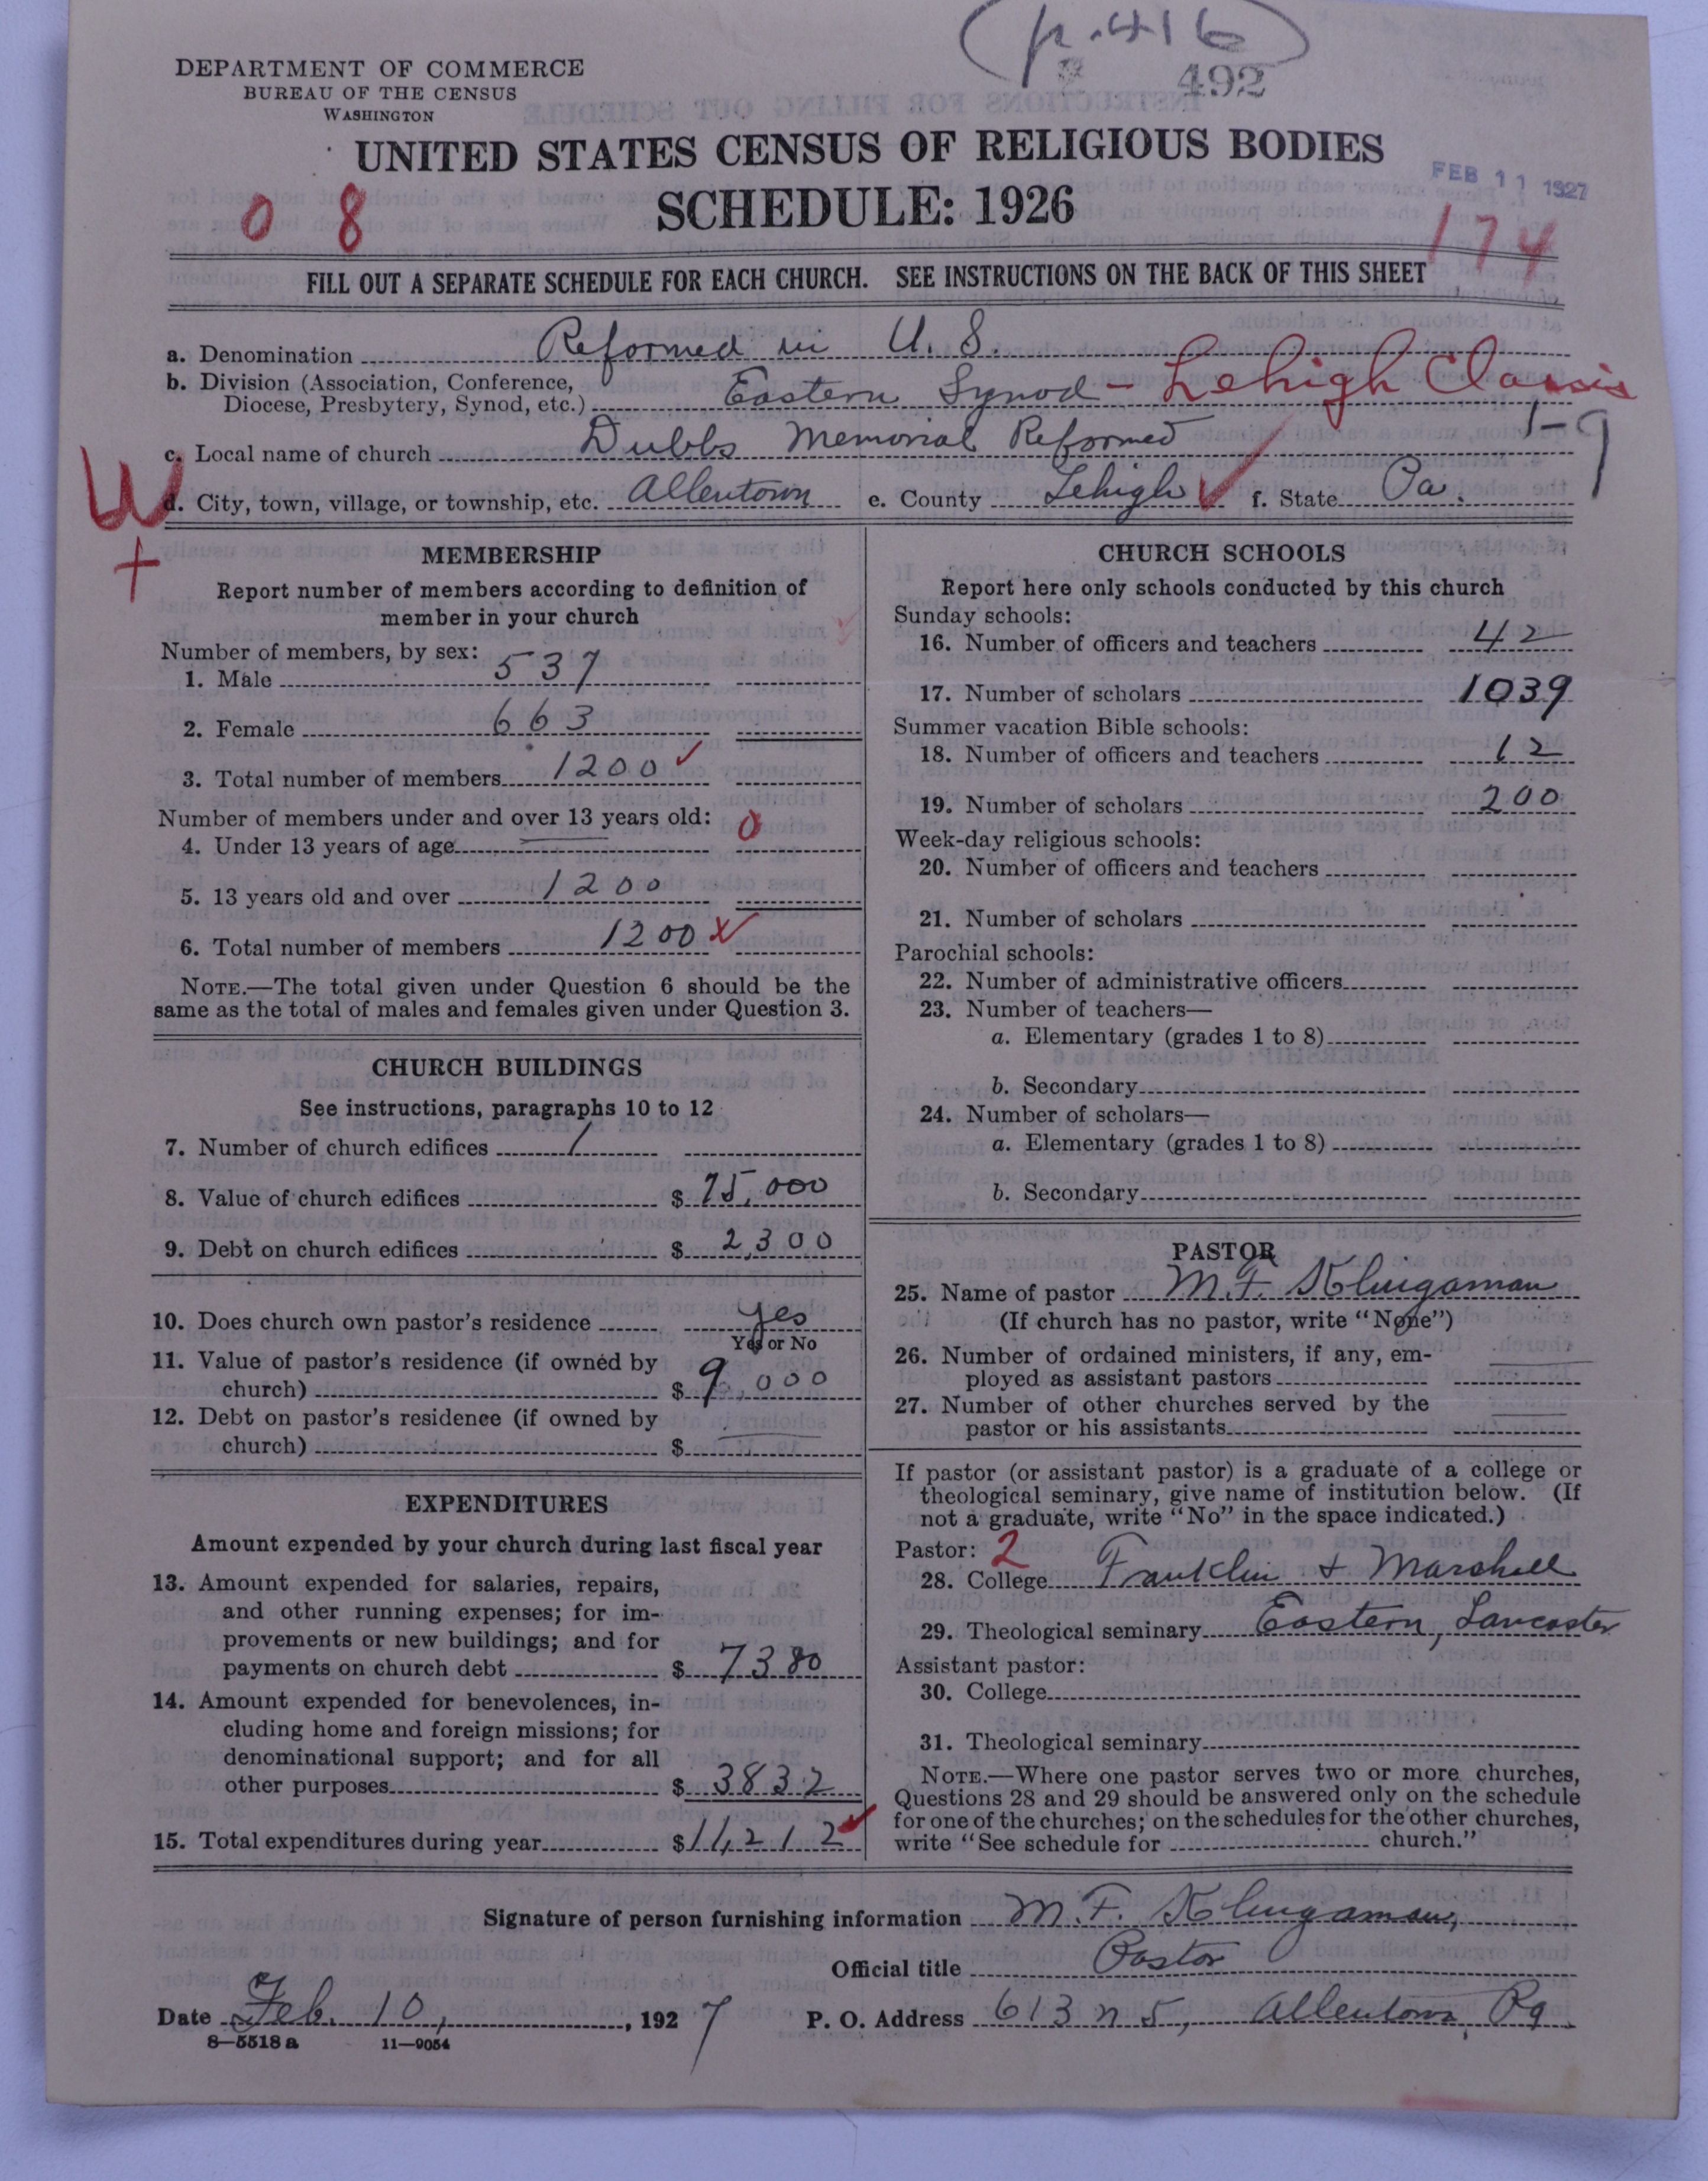 p. 416
492
DEPARTMENT OF COMMERCE
BUREAU OF THE CENSUS
WASHINGTON
UNITED STATES CENSUS OF RELIGIOUS BODIES
SCHEDULE: 1926
FEB 11 1927
0 8
174
FILL OUT A SEPARATE SCHEDULE FOR EACH CHURCH. SEE INSTRUCTIONS ON THE BACK OF THIS SHEET
a. Denomination Reformed in U. S.
b. Division (Association, Conference, Diocese, Presbytery, Synod, etc.) Eastern Synod - Lehigh Classis
1-9
c. Local name of church Dubbs Memorial Reformed
W
d. City, town, village, or township, etc. Allentown e. County Lehigh ✓ f. State Pa.
+
MEMBERSHIP
Report number of members according to definition of
member in your church
Number of members, by sex:
1. Male 537
2. Female 663
3. Total number of members 1200 ✓
Number of members under and over 13 years old:
4. Under 13 years of age — 0
5. 13 years old and over 1200
6. Total number of members 1200 X
NOTE.—The total given under Question 6 should be the
same as the total of males and females given under Question 3.
CHURCH BUILDINGS
See instructions, paragraphs 10 to 12
7. Number of church edifices 1
8. Value of church edifices $ 75,000
9. Debt on church edifices $ 2,300
10. Does church own pastor's residence Yes
Yes or No
11. Value of pastor's residence (if owned by
church) $ 9,000
12. Debt on pastor's residence (if owned by
church) $ —
EXPENDITURES
Amount expended by your church during last fiscal year
13. Amount expended for salaries, repairs,
and other running expenses; for im-
provements or new buildings; and for
payments on church debt $ 7380
14. Amount expended for benevolences, in-
cluding home and foreign missions; for
denominational support; and for all
other purposes $ 3832
15. Total expenditures during year $ 11,212 ✓
CHURCH SCHOOLS
Report here only schools conducted by this church
Sunday schools:
16. Number of officers and teachers 42
17. Number of scholars 1039
Summer vacation Bible schools:
18. Number of officers and teachers 12
19. Number of scholars 200
Week-day religious schools:
20. Number of officers and teachers
21. Number of scholars
Parochial schools:
22. Number of administrative officers
23. Number of teachers—
a. Elementary (grades 1 to 8)
b. Secondary
24. Number of scholars—
a. Elementary (grades 1 to 8)
b. Secondary
PASTOR
25. Name of pastor M. F. Klingaman
(If church has no pastor, write "None")
26. Number of ordained ministers, if any, em-
ployed as assistant pastors —
27. Number of other churches served by the
pastor or his assistants —
If pastor (or assistant pastor) is a graduate of a college or
theological seminary, give name of institution below. (If
not a graduate, write "No" in the space indicated.)
Pastor: 2
28. College Franklin & Marshall
29. Theological seminary Eastern, Lancaster
Assistant pastor:
30. College
31. Theological seminary
NOTE.—Where one pastor serves two or more churches,
Questions 28 and 29 should be answered only on the schedule
for one of the churches; on the schedules for the other churches,
write "See schedule for church."
Signature of person furnishing information M. F. Klingaman,
Official title Pastor
Date Feb. 10, 1927 P. O. Address 613 N 5, Allentown, Pa.
8—5518 a 11—9054